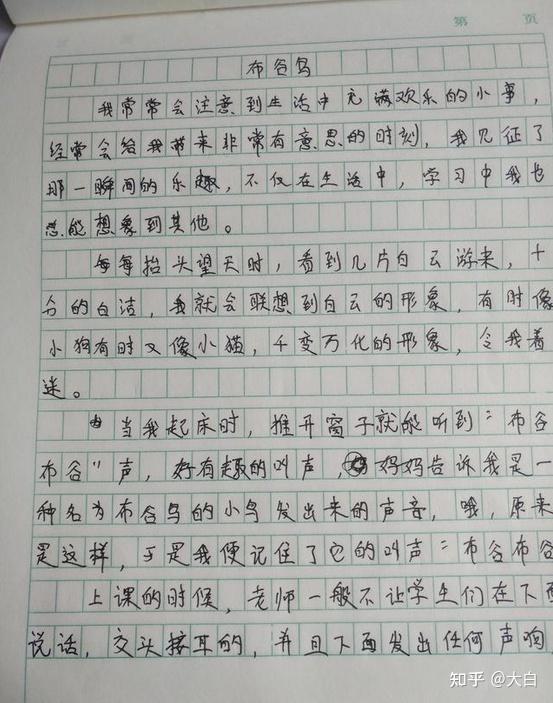 第 页
布谷鸟
我常常会注意到生活中充满欢乐的小事，
经常会给我带来非常有意思的时刻，我见证了
那一瞬间的乐趣，不仅在生活中，学习中我也
总能想象到其他。
每每抬头望天时，看到几片白云游来，十
分的白洁，我就会联想到白云的形象，有时像
小狗有时又像小猫，千变万化的形象，令我着
迷。
当我起床时，推开窗子就能听到“布谷
布谷”声，好有趣的叫声，妈妈告诉我是一
种名为布谷鸟的小鸟发出来的声音，哦，原来
是这样，于是我便记住了它的叫声“布谷布谷
上课的时候，老师一般不让学生们在下面
说话，交头接耳的，并且下面发出任何声响，
知乎 @大白